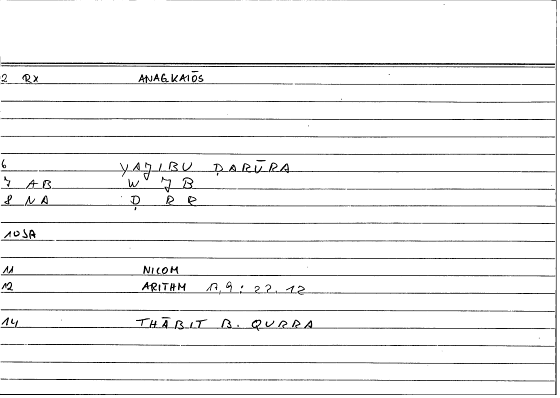 2 RX ANAGKAIŌS
6 YAJIBU ḌARŪRA
7 AB W J B
8 NA Ḍ R R
10 JA
11 NICOM
12 ARITHM 17,9 : 22.12
14 THĀBIT B. QURRA